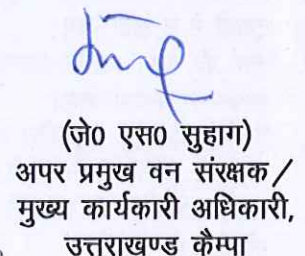 (जे0 एस0 सुहाग)
अपर प्रमुख वन संरक्षक /
मुख्य कार्यकारी अधिकारी,
उत्तराखण्ड कैम्पा